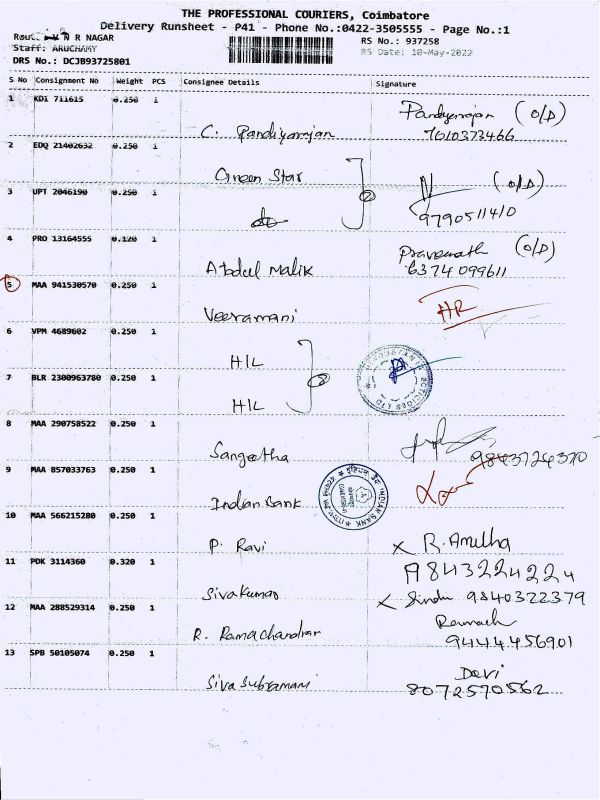 THE PROFESSIONAL COURIERS, Coimbatore
Delivery Runsheet - P41 - Phone No.:0422-3505555 - Page No.:1
N R NAGAR RS No.: 937258
Staff: ARUCHAMY RS Date: 10-May-2022
DRS No.: DCJB93725801
S No Consignment No Weight PCS Consignee Details Signature
1 KDI 711615 0.250 1 C. Pandiyarajan Pandiyarajan (O/D) 7010373466
2 EDQ 21402632 0.250 1 Green Star
3 UPT 2046190 0.250 1 do (O/D) 9790511410
4 PRO 13164555 0.120 1 Abdul Malik (O/D) 6374099611
5 MAA 941530570 0.250 1 Veeramani HR
6 VPM 4689602 0.250 1 HIL
7 BLR 2300963780 0.250 1 HIL
8 MAA 290758522 0.250 1 Sangeetha 9843724370
9 MAA 857033763 0.250 1 Indian Bank
INDIAN BANK
10 MAA 566215280 0.250 1 P. Ravi x R. Amutha
9843224224
11 PDK 3114360 0.320 1 Sivakumar x Sindu 9840322379
12 MAA 288529314 0.250 1 R. Ramachandran 9444456901
13 SPB 50105074 0.250 1 Siva Subramani Devi
8072570562